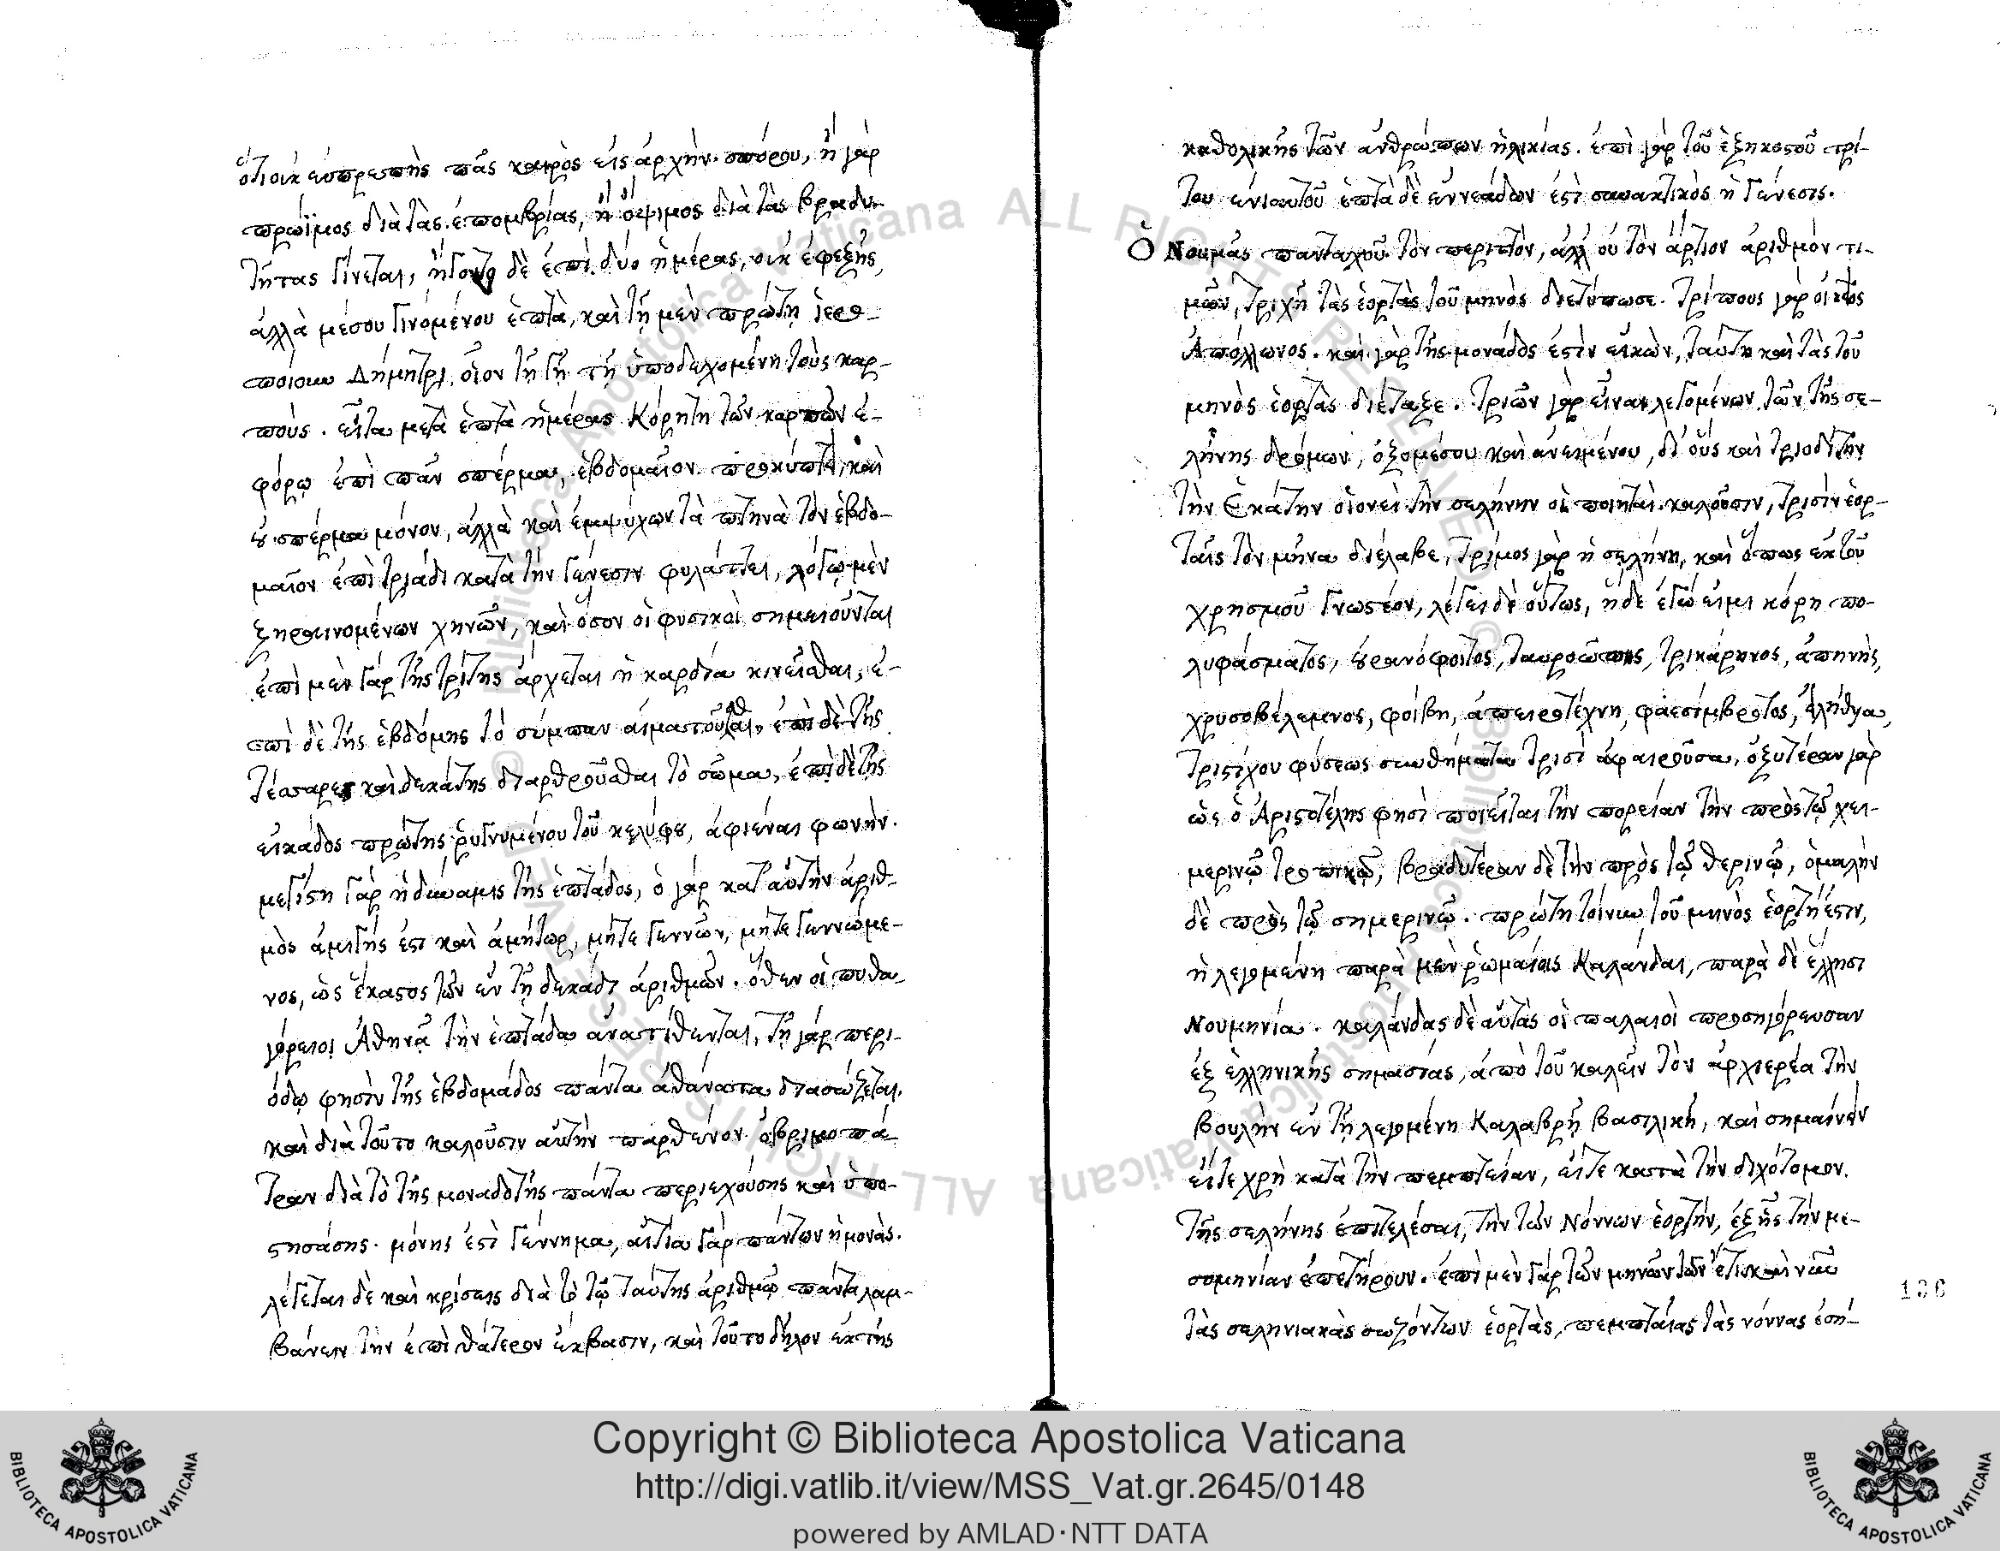 ὅτι οὐκ εὐπρεπὴς πᾶς καιρὸς εἰς ἀρχὴν σπόρου, ἢ γὰρ
πρώϊμος διὰ τὰς ἐπομβρίας, ἢ ὄψιμος διὰ τὰς βραδυ-
τῆτας γίνεται, ἤγοντο δὲ ἐπὶ δύο ἡμέρας, οὐκ ἐφεξῆς,
ἀλλὰ μέσου γινομένου ἑπτὰ, καὶ τῇ μὲν πρώτῃ ἱερο-
ποίουν Δήμητρι, οἷον τῇ γῇ τῇ ὑποδεχομένῃ τοὺς καρ-
πούς. εἶτα μετὰ ἑπτὰ ἡμέρας Κόρῃ τῇ τῶν καρπῶν ἐ-
φόρῳ ἐπὶ πᾶν σπέρμα, ἑβδομαῖον προκύπτει, καὶ
οὐ σπέρμα μόνον, ἀλλὰ καὶ ἐμψύχων τὰ πτηνὰ τὸν ἑβδο-
μαῖον ἐπὶ τριάδι κατὰ τὴν γένεσιν φυλάττει, λόγῳ μὲν
ξηραινομένων χηνῶν, καὶ ὅσον οἱ φυσικοὶ σημειοῦνται
ἐπὶ μὲν γὰρ τῆς τρίτης ἄρχεται ἡ καρδία κινεῖσθαι, ἐ-
πὶ δὲ τῆς ἑβδόμης τὸ σύμπαν αἱματοῦσθαι, ἐπὶ δὲ τῆς
τέσσαρες καὶ δεκάτης διαρθροῦσθαι τὸ σῶμα, ἐπὶ δὲ τῆς
εἰκάδος πρώτης ῥυγνυμένου τοῦ κελύφους, ἀφιέναι φωνήν.
μεγίστη γὰρ ἡ δύναμις τῆς ἑπτάδος, ὁ γὰρ κατ' αὐτὴν ἀριθ-
μὸς ἀμιγής ἐστι καὶ ἀμήτωρ, μήτε γεννῶν, μήτε γεννώμε-
νος, ὡς ἕκαστος τῶν ἐν τῇ δεκάδι ἀριθμῶν. ὅθεν οἱ πυθα-
γόρειοι Ἀθηνᾷ τὴν ἑπτάδα ἀνατίθενται, τῇ γὰρ περι-
όδῳ φησὶν τῆς ἑβδομάδος πάντα ἀθάνατα διασώζεται.
καὶ διὰ τοῦτο καλοῦσιν αὐτὴν παρθένον ὀβριμοπά-
τραν διὰ τὸ τῆς μονάδος τῆς πάντα περιεχούσης καὶ ὑπο-
στησάσης. μόνης ἐστὶ γέννημα, αἰτία γὰρ πάντων ἡ μονάς.
λέγεται δὲ καὶ κρίσις διὰ τὸ τῷ ταύτης ἀριθμῷ πάντα λαμ-
βάνειν τὴν ἐπὶ θάτερον ἔκβασιν, καὶ τοῦτο δῆλον ἐκ τῆς
καθολικῆς τῶν ἀνθρώπων ἡλικίας. ἐπὶ γὰρ τοῦ ἑξηκοστοῦ τρί-
του ἐνιαυτοῦ ἑπτὰ δὲ ἐννεάδων ἐστὶ συνακτικὸς ἡ γένεσις.
Ὁ Νουμᾶς πανταχοῦ τὸν περιττὸν, ἀλλ' οὐ τὸν ἄρτιον ἀριθμὸν τι-
μῶν, τριχῇ τὰς ἑορτὰς τοῦ μηνὸς διετύπωσε. τρίπους γὰρ
Ἀπόλλωνος. καὶ γὰρ τῆς μονάδος ἐστὶν εἰκὼν, ταύτῃ καὶ τὰς τοῦ
μηνὸς ἑορτὰς διέταξε. τριῶν γὰρ εἶναι λεγομένων τῶν τῆς σε-
λήνης δρόμων, ὀξυμέσου καὶ ἀνειμένου, δι' οὓς καὶ τριοδῖτιν
τὴν Ἑκάτην οἱονεὶ τὴν σελήνην οἱ ποιηταὶ καλοῦσιν, τρισὶν ἑορ-
ταῖς τὸν μῆνα διέλαβε, τρίμος γὰρ ἡ σελήνη, καὶ ὅπως ἐκ τοῦ
χρησμοῦ γνωστέον, λέγει δὲ οὕτως, ἥδε ἐγώ εἰμι κόρη πο-
λυφάσματος, οὐρανόφοιτος, ταυροῶπις, τρικάρηνος, ἀπηνὴς,
χρυσοβέλεμνος, φοίβη, ἀπειροτέχνη, φαεσίμβροτος, ἐλήθυα,
τριστίχου φύσεως συνθήματα τρισὶ ἀφαιροῦσα, ὀξυτέραν γὰρ
ὡς ὁ Ἀριστοτέλης φησὶ ποιεῖται τὴν πορείαν τὴν πρὸς τῷ χει-
μερινῷ τροπικῷ, βραδυτέραν δὲ τὴν πρὸς τῷ θερινῷ, ὁμαλὴν
δὲ πρὸς τῷ σημερινῷ. πρώτη τοίνυν τοῦ μηνὸς ἑορτή ἐστιν,
ἡ λεγομένη παρὰ μὲν ῥωμαίοις Καλάνδαι, παρὰ δὲ ἕλλησι
Νουμηνία. καλάνδας δὲ αὐτὰς οἱ παλαιοὶ προσηγόρευσαν
ἐξ ἑλληνικῆς σημασίας, ἀπὸ τοῦ καλεῖν τὸν ἀρχιερέα τὴν
βουλὴν ἐν τῇ λεγομένῃ Καλαβρῇ βασιλικῇ, καὶ σημαίνειν
εἴτε χρὴ κατὰ τὴν πεμπτείαν, εἴτε κατὰ τὴν διχότομον.
τῆς σελήνης ἐπιτελέσαι, τὴν τῶν Νόννων ἑορτὴν, ἑξῆς τὴν με-
σομηνίαν ἐπετήρουν. ἐπὶ μὲν γὰρ τῶν μηνῶν τῶν ἔτι καὶ νῦν
τὰς σεληνιακὰς σωζόντων ἑορτὰς, πεμπταίας τὰς νόννας ἐσή-
136
Copyright © Biblioteca Apostolica Vaticana
http://digi.vatlib.it/view/MSS_Vat.gr.2645/0148
powered by AMLAD·NTT DATA
BIBLIOTECA APOSTOLICA VATICANA
BIBLIOTECA APOSTOLICA VATICANA